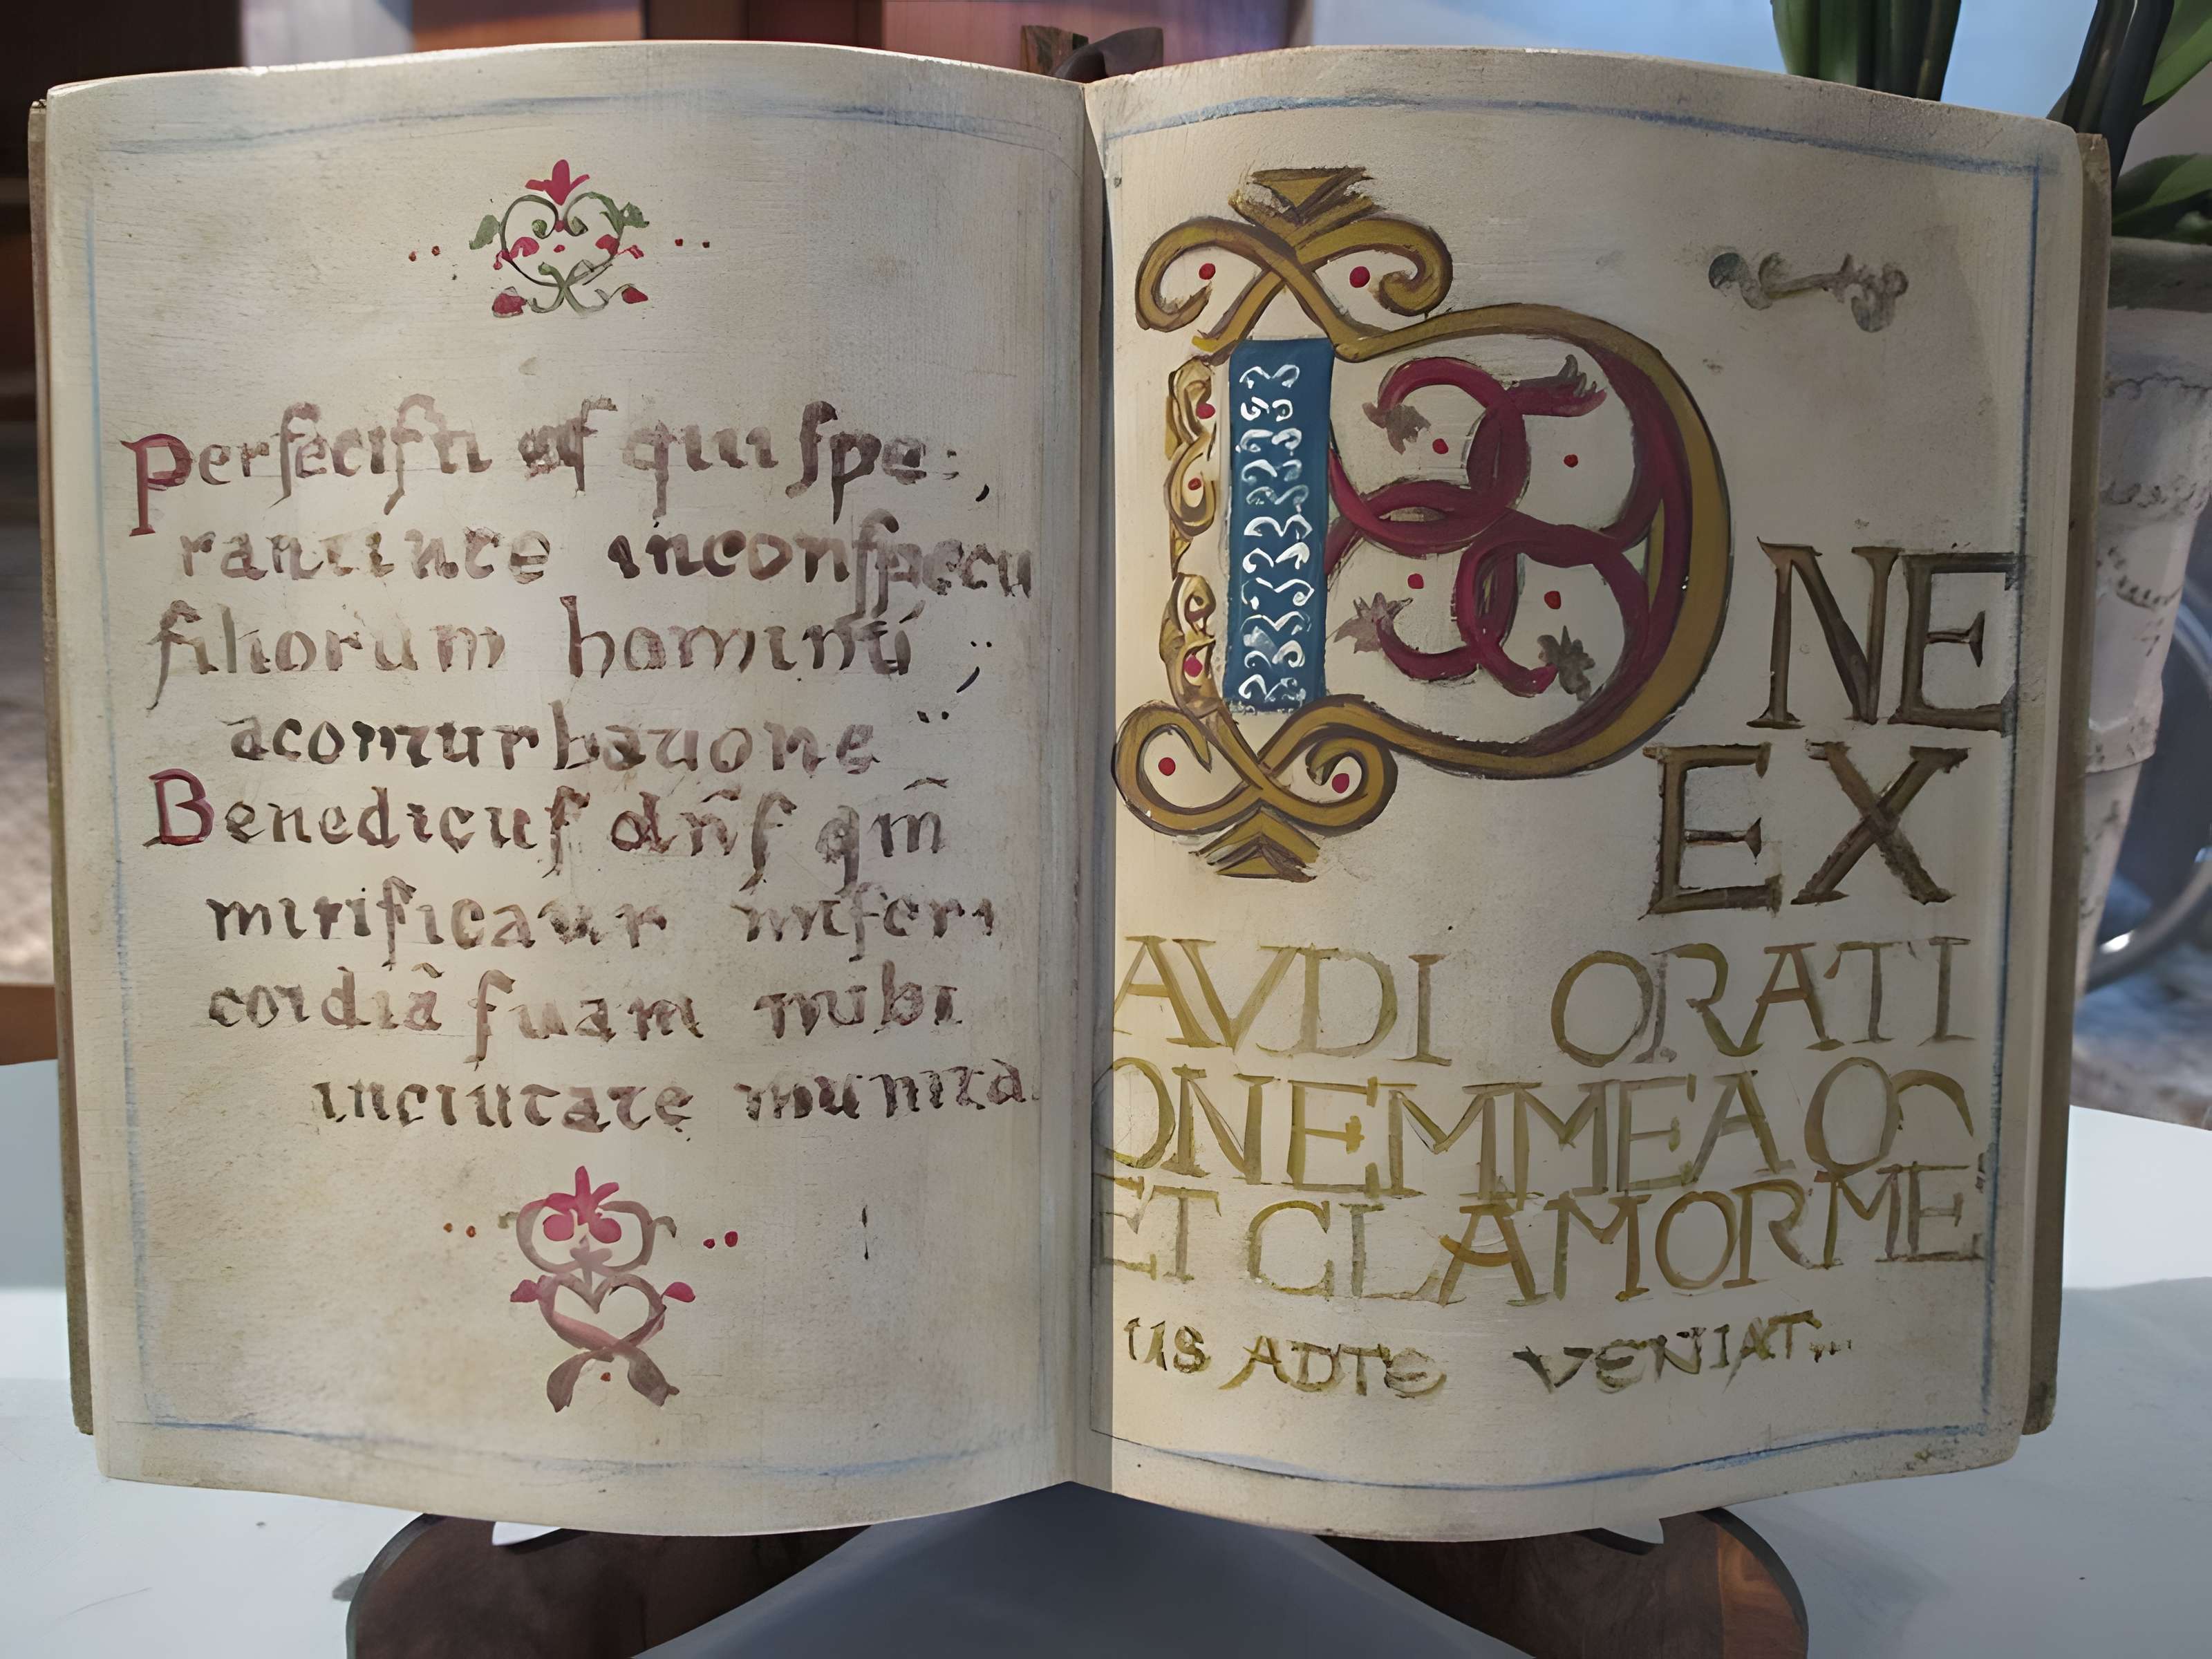 Perfecisti eis qui spe:,
rant in te inconspectu
filiorum hominū ;
aconturbatione
Benedictus dn̄s qm̄
mirificavit miseri
cordiā suam mihi
incivitate munita.
DNE
EX
AVDI ORATI
ONEMMEA
ET CLAMORME
US ADTE VENIAT...